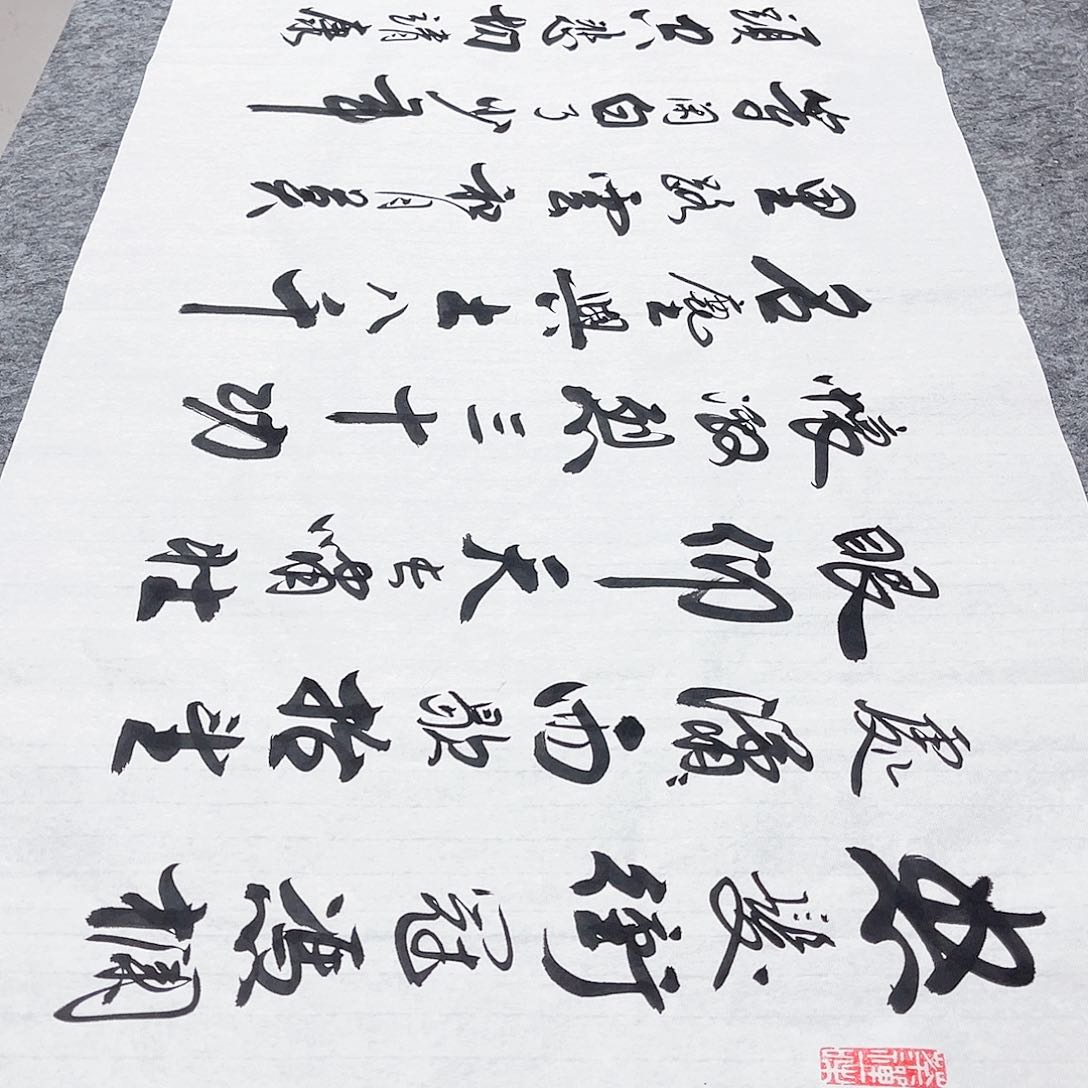 怒髮衝冠憑欄
處瀟瀟雨歇抬望
眼仰天長嘯壯
懷激烈三十功
名塵與土八千
里路雲和月莫
等閑白了少年
頭空悲切靖康